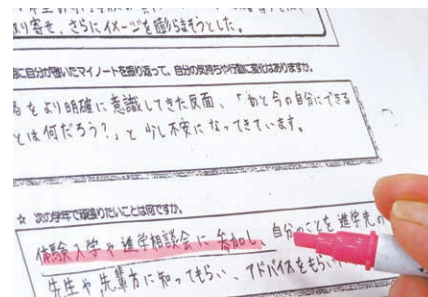 り寄せ、さらにイメージを膨らまそうとした。
に自分が書いたマイノートを振り返って、自分の気持ちや行動に変化はありますか。
をより明確に意識してきた反面、「あと今の自分にできる
とは何だろう?」と少し不安になってきています。
☆ 次の学年で頑張りたいことは何ですか。
体験入学や進学相談会に参加し、自分のことを進学先の
先生や先輩方に知ってもらい、アドバイスをもらい